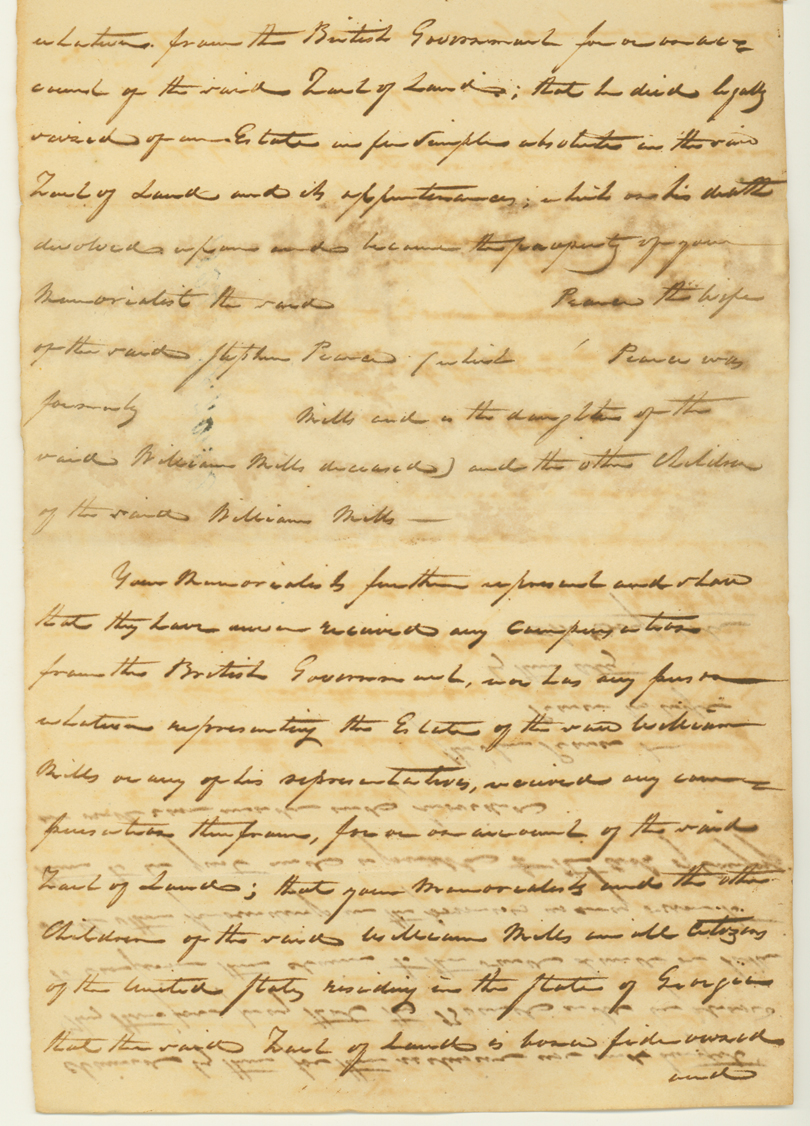 whatever from the British Government for or on ac=
count of the said Tract of Land; that he died legally
seised of an Estate in fee simple absolute in the said
Tract of Land and its appurtenances; which on his death
devolved upon and became the property of your
Memorialist the said Pearce the wife
of the said Stephen Pearce (which Pearce was
formerly Mills and is the daughter of the
said William Mills deceased) and the other Children
of the said William Mills —
Your Memorialists further represent and shew
that they have never received any compensation
from the British Government, nor has any person
whatever representing the Estate of the said William
Mills or any of his representatives, received any com=
pensation therefrom, for or on account of the said
Tract of Land; that your Memorialists and the other
Children of the said William Mills are all Citizens
of the United States residing in the State of Georgia
that the said Tract of Land is bona fide owned
and